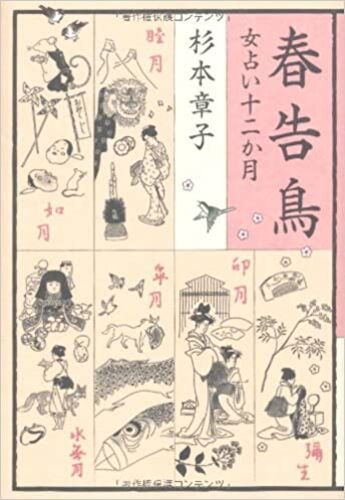 著作権保護コンテンツ
春告鳥
女占い十二か月
杉本章子
睦月
如月
彌生
卯月
皐月
水無月
著作権保護コンテンツ